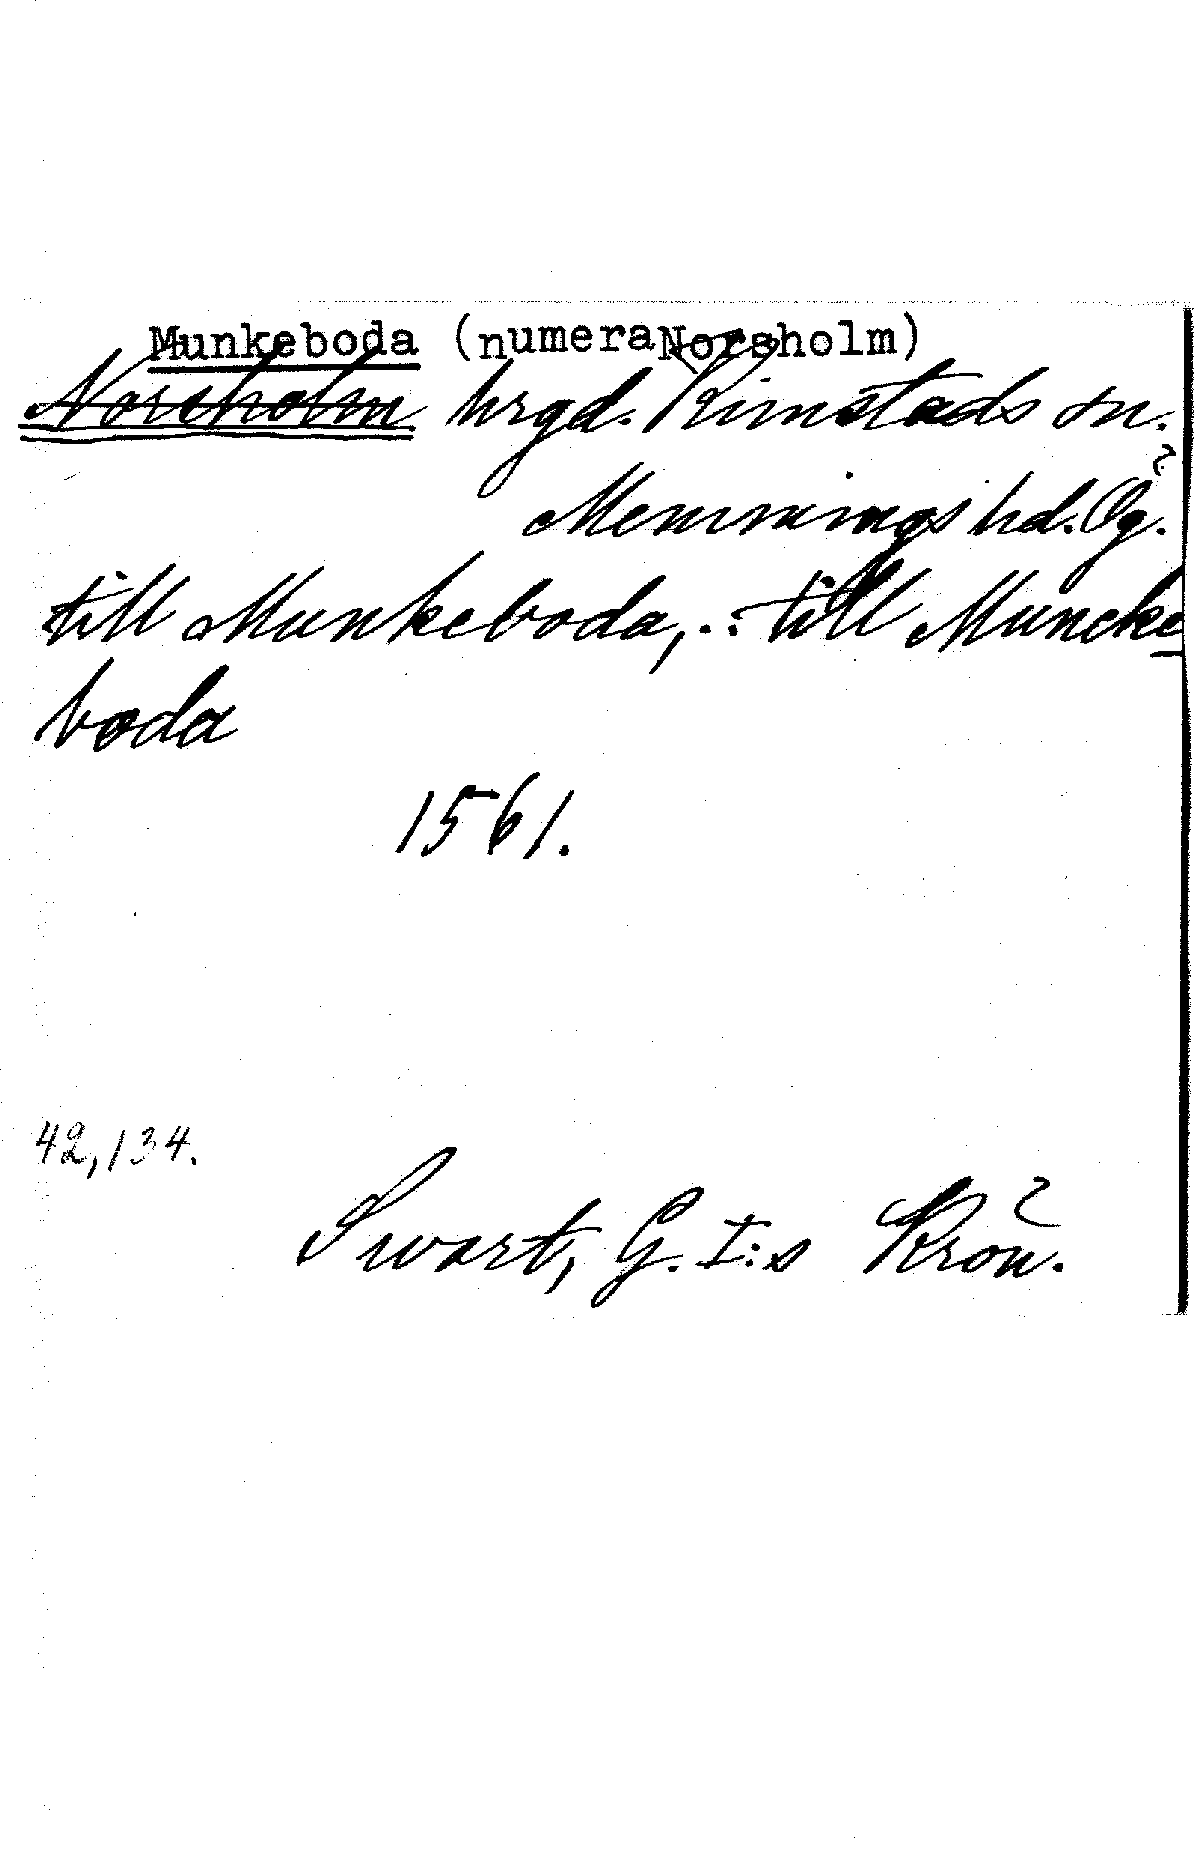 Munkeboda (numera Norsholm)
Norsholm hrgd. Kimstads sn.
Memmings hd. Ög.
till Munkeboda, .: till Muncke
boda
1561.
42,134.
Swart, G. I:s Krön.